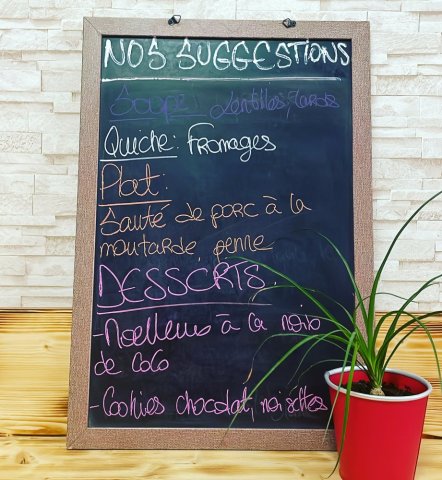 NOS SUGGESTIONS
Soupe: Lentilles, lards
Quiche: Fromages
Plat:
Sauté de porc à la
moutarde, penne
DESSERTS.
- Moelleux à la noix
de coco
- Cookies chocolat, noisettes